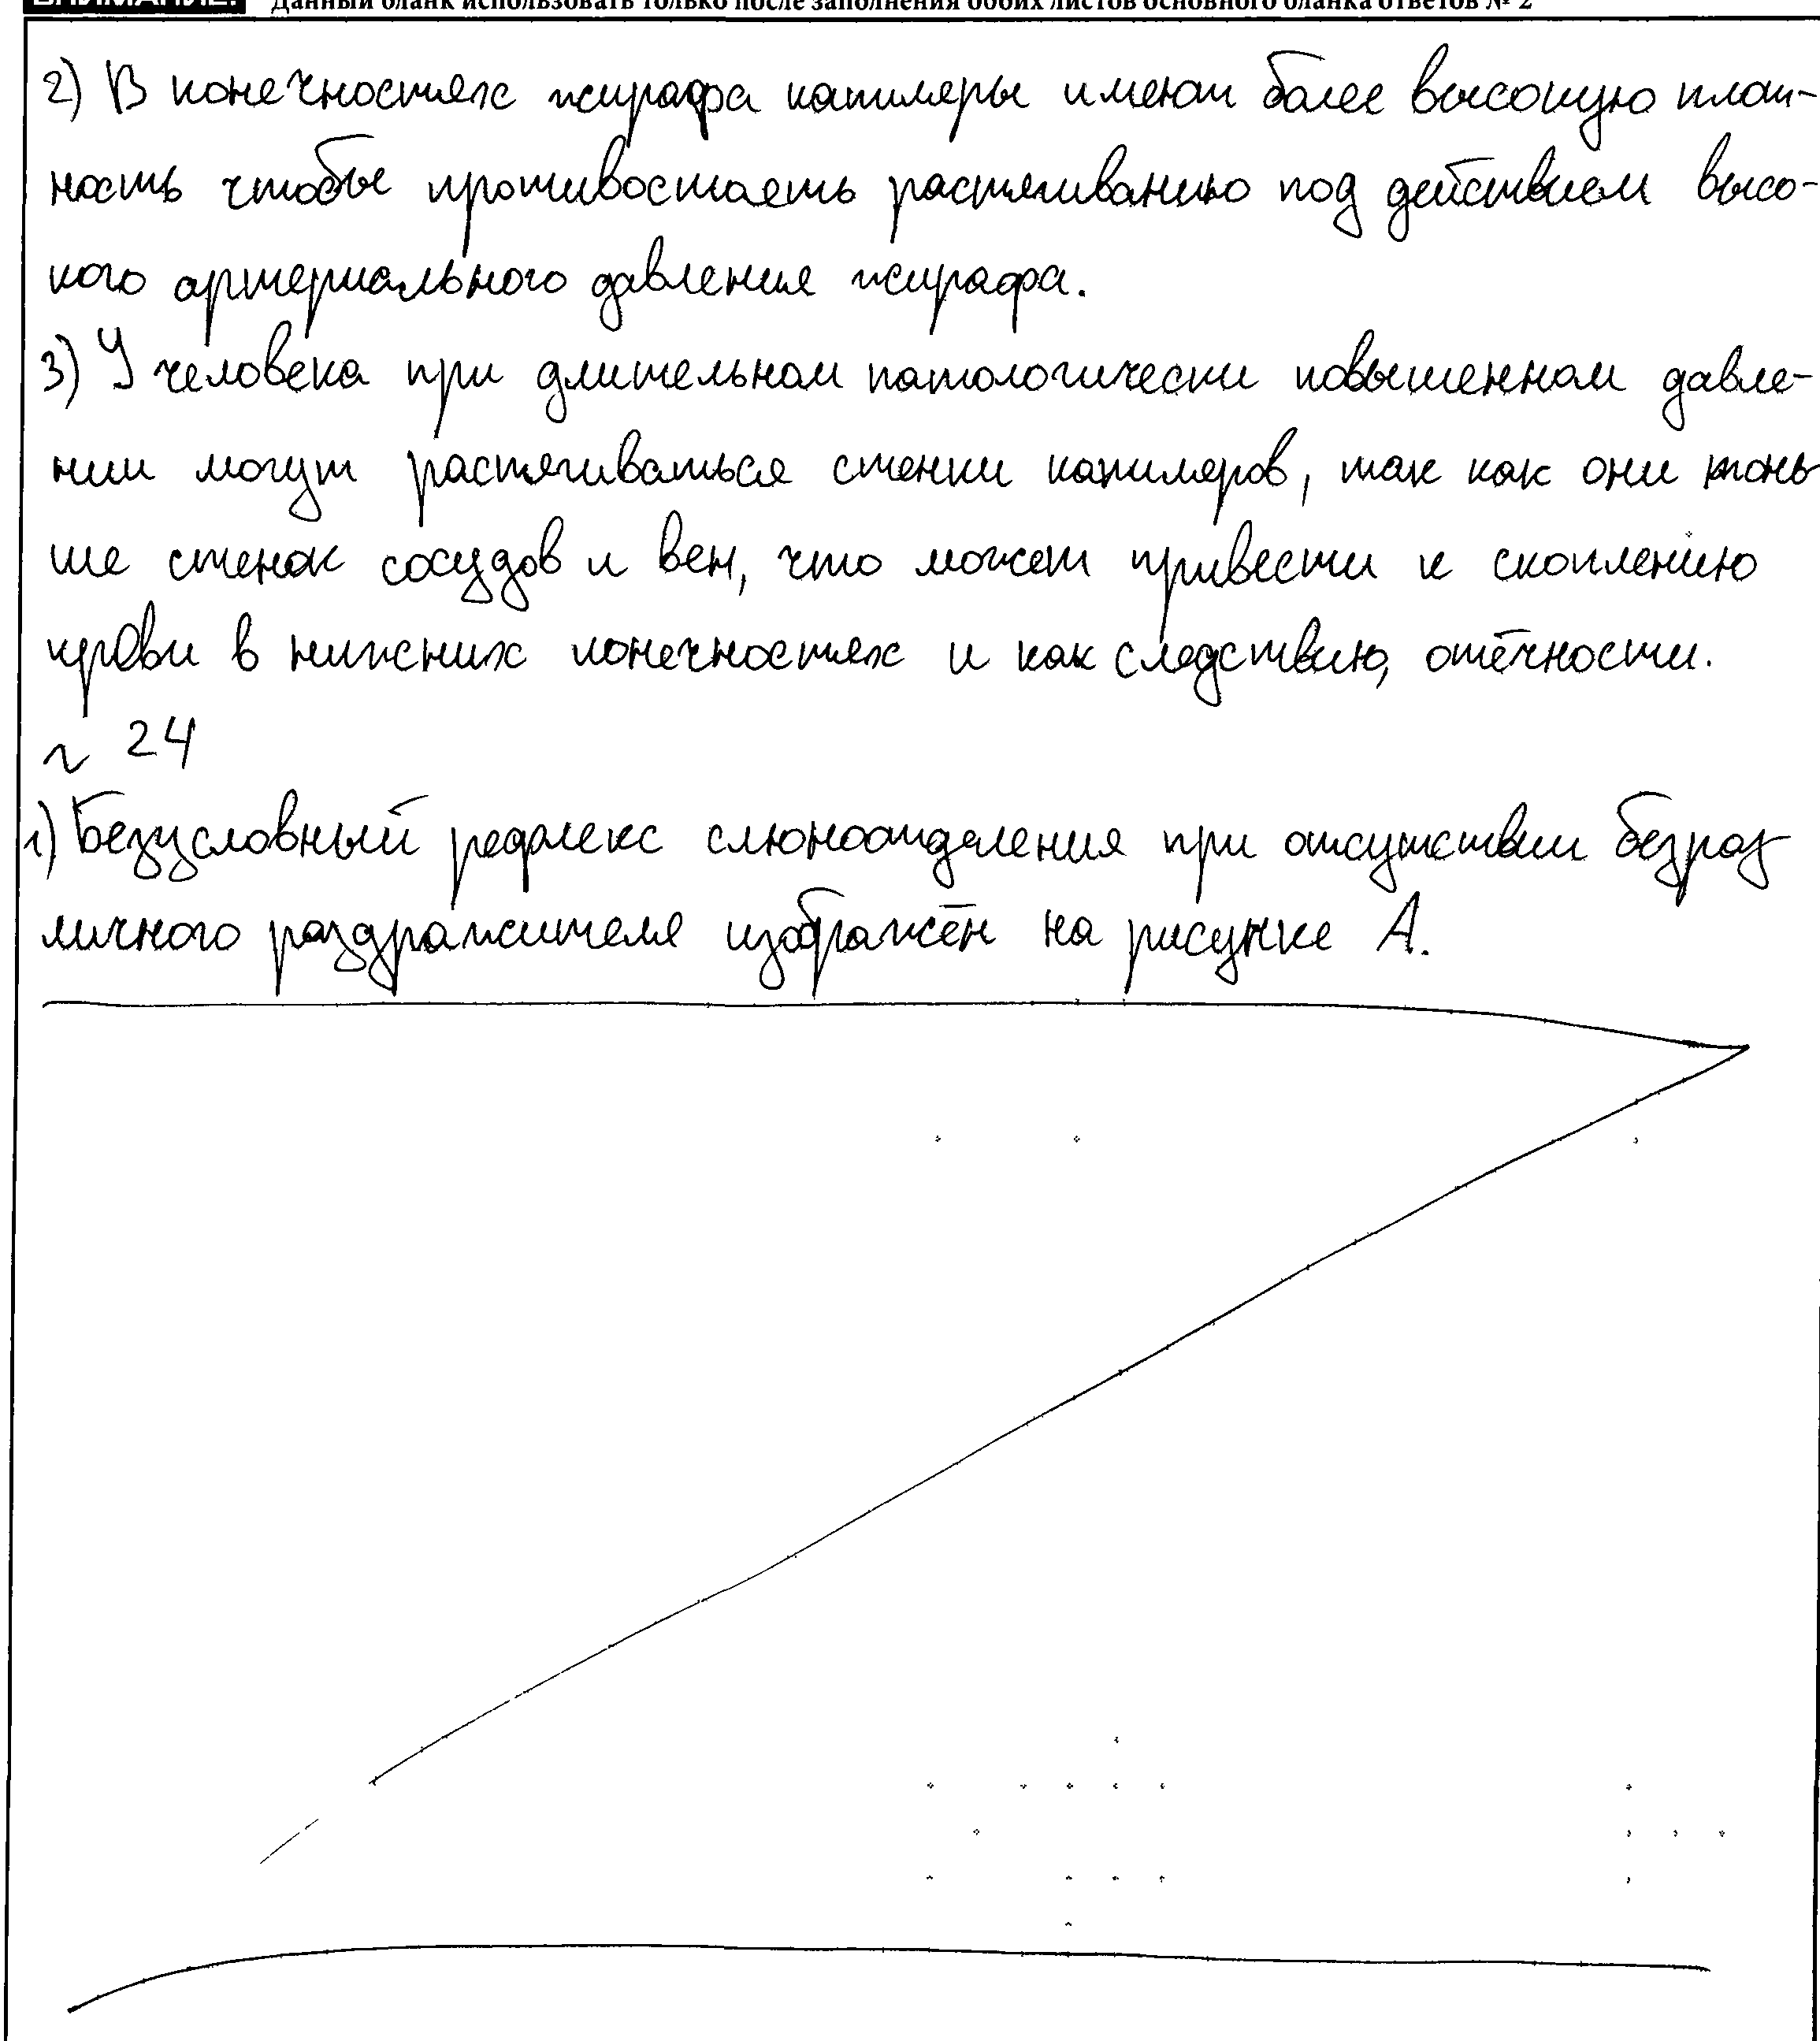 ВНИМАНИЕ! Данный бланк использовать только после заполнения обоих листов основного бланка ответов № 2
2) В конечностях жирафа капиляры имеют более высокую плот-
ность чтобы противостаять растягиванию под действием высо-
кого артериального давления жирафа.
3) У человека при длительном патологически повышенном давле-
нии могут растягиваться стенки капиляров, так как они тонь
ше стенок сосудов и вен, что может привести к скоплению
крови в нижних конечностях и как следствию, отёчности.
№ 24
1) Безусловный рефлекс слюноотделения при отсутствии безраз
личного раздражителя изображён на рисунке А.